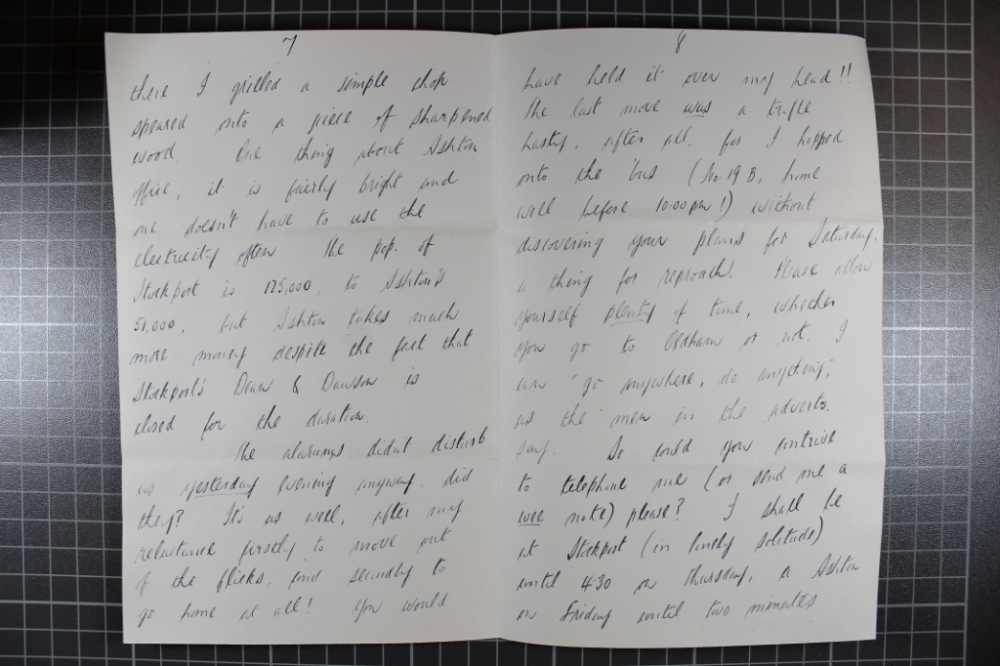 7
there I grilled a simple chop
speared onto a piece of sharpened
wood. One thing about Ashton
office, it is fairly bright and
one doesn't have to use the
electricity often. The pop. of
Stockport is 125,000, to Ashton's
51,000, but Ashton takes much
more money despite the fact that
Stockport's Dean & Dawson is
closed for the duration.
The alarums didn't disturb
us yesterday evening anyway, did
they? It's as well, after my
reluctance firstly to move out
of the flicks, and secondly to
go home at all! You would
8
have held it over my head!!
The last move was a trifle
hasty, after all, for I hopped
onto the 'bus (No. 19B, home
well before 10.00pm!) without
discovering your plans for Saturday,
a thing for reproach! Please allow
yourself plenty of time, whether
you go to Oldham or not. I
can "go anywhere, do anything",
as the men in the adverts.
say. So could you contrive
to telephone me (or send me a
wee note) please? I shall be
at Stockport (in lonely solitude)
until 4.30 on Thursday, a Ashton
on Friday until two minutes